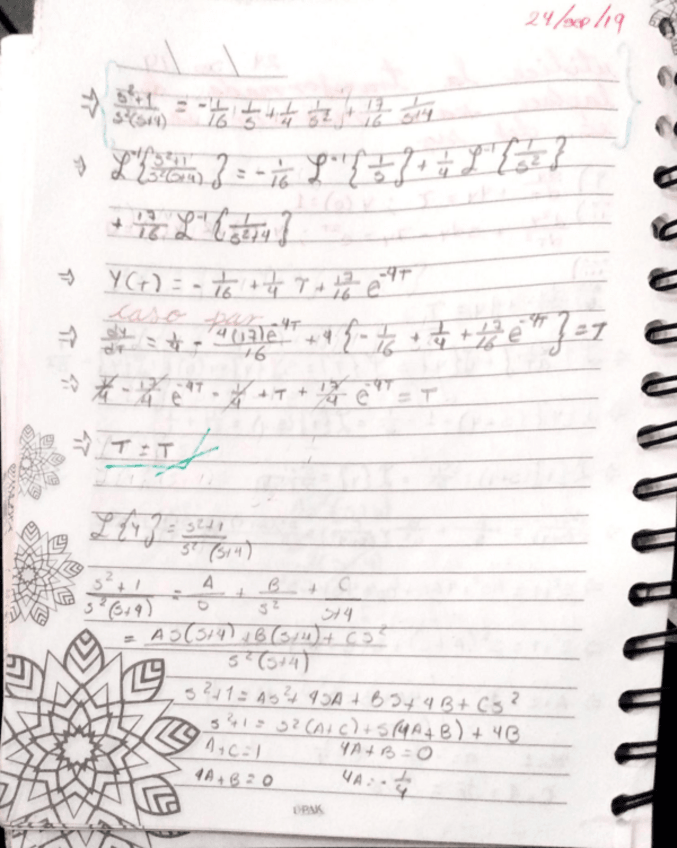 24/sep/19
⇒ (s²+1)/(s²(s+4)) = -1/16 · 1/s + 1/4 · 1/s² + 17/16 · 1/(s+4)
⇒ ℒ⁻¹{(s²+1)/(s²(s+4))} = -1/16 ℒ⁻¹{1/s} + 1/4 ℒ⁻¹{1/s²}
+ 17/16 ℒ⁻¹{1/(s²+4)}
⇒ Y(t) = -1/16 + 1/4 T + 17/16 e^(-4T)
caso par
⇒ dy/dT = 1/4 - 4(17)e^(-4T)/16 + 4{-1/16 + 1/4 + 17/16 e^(-4T)} = T
⇒ 1/4 - 17/4 e^(-4T) - 1/4 + T + 17/4 e^(-4T) = T
⇒ T = T
ℒ{Y} = (s²+1)/(s²(s+4))
(s²+1)/(s²(s+4)) = A/s + B/s² + C/(s+4)
= (As(s+4)+B(s+4)+Cs²)/(s²(s+4))
s²+1 = As²+4sA+Bs+4B+Cs²
s²+1 = s²(A+C)+s(4A+B)+4B
A+C=1 4A+B=0
4A+B=0 4A=-1/4